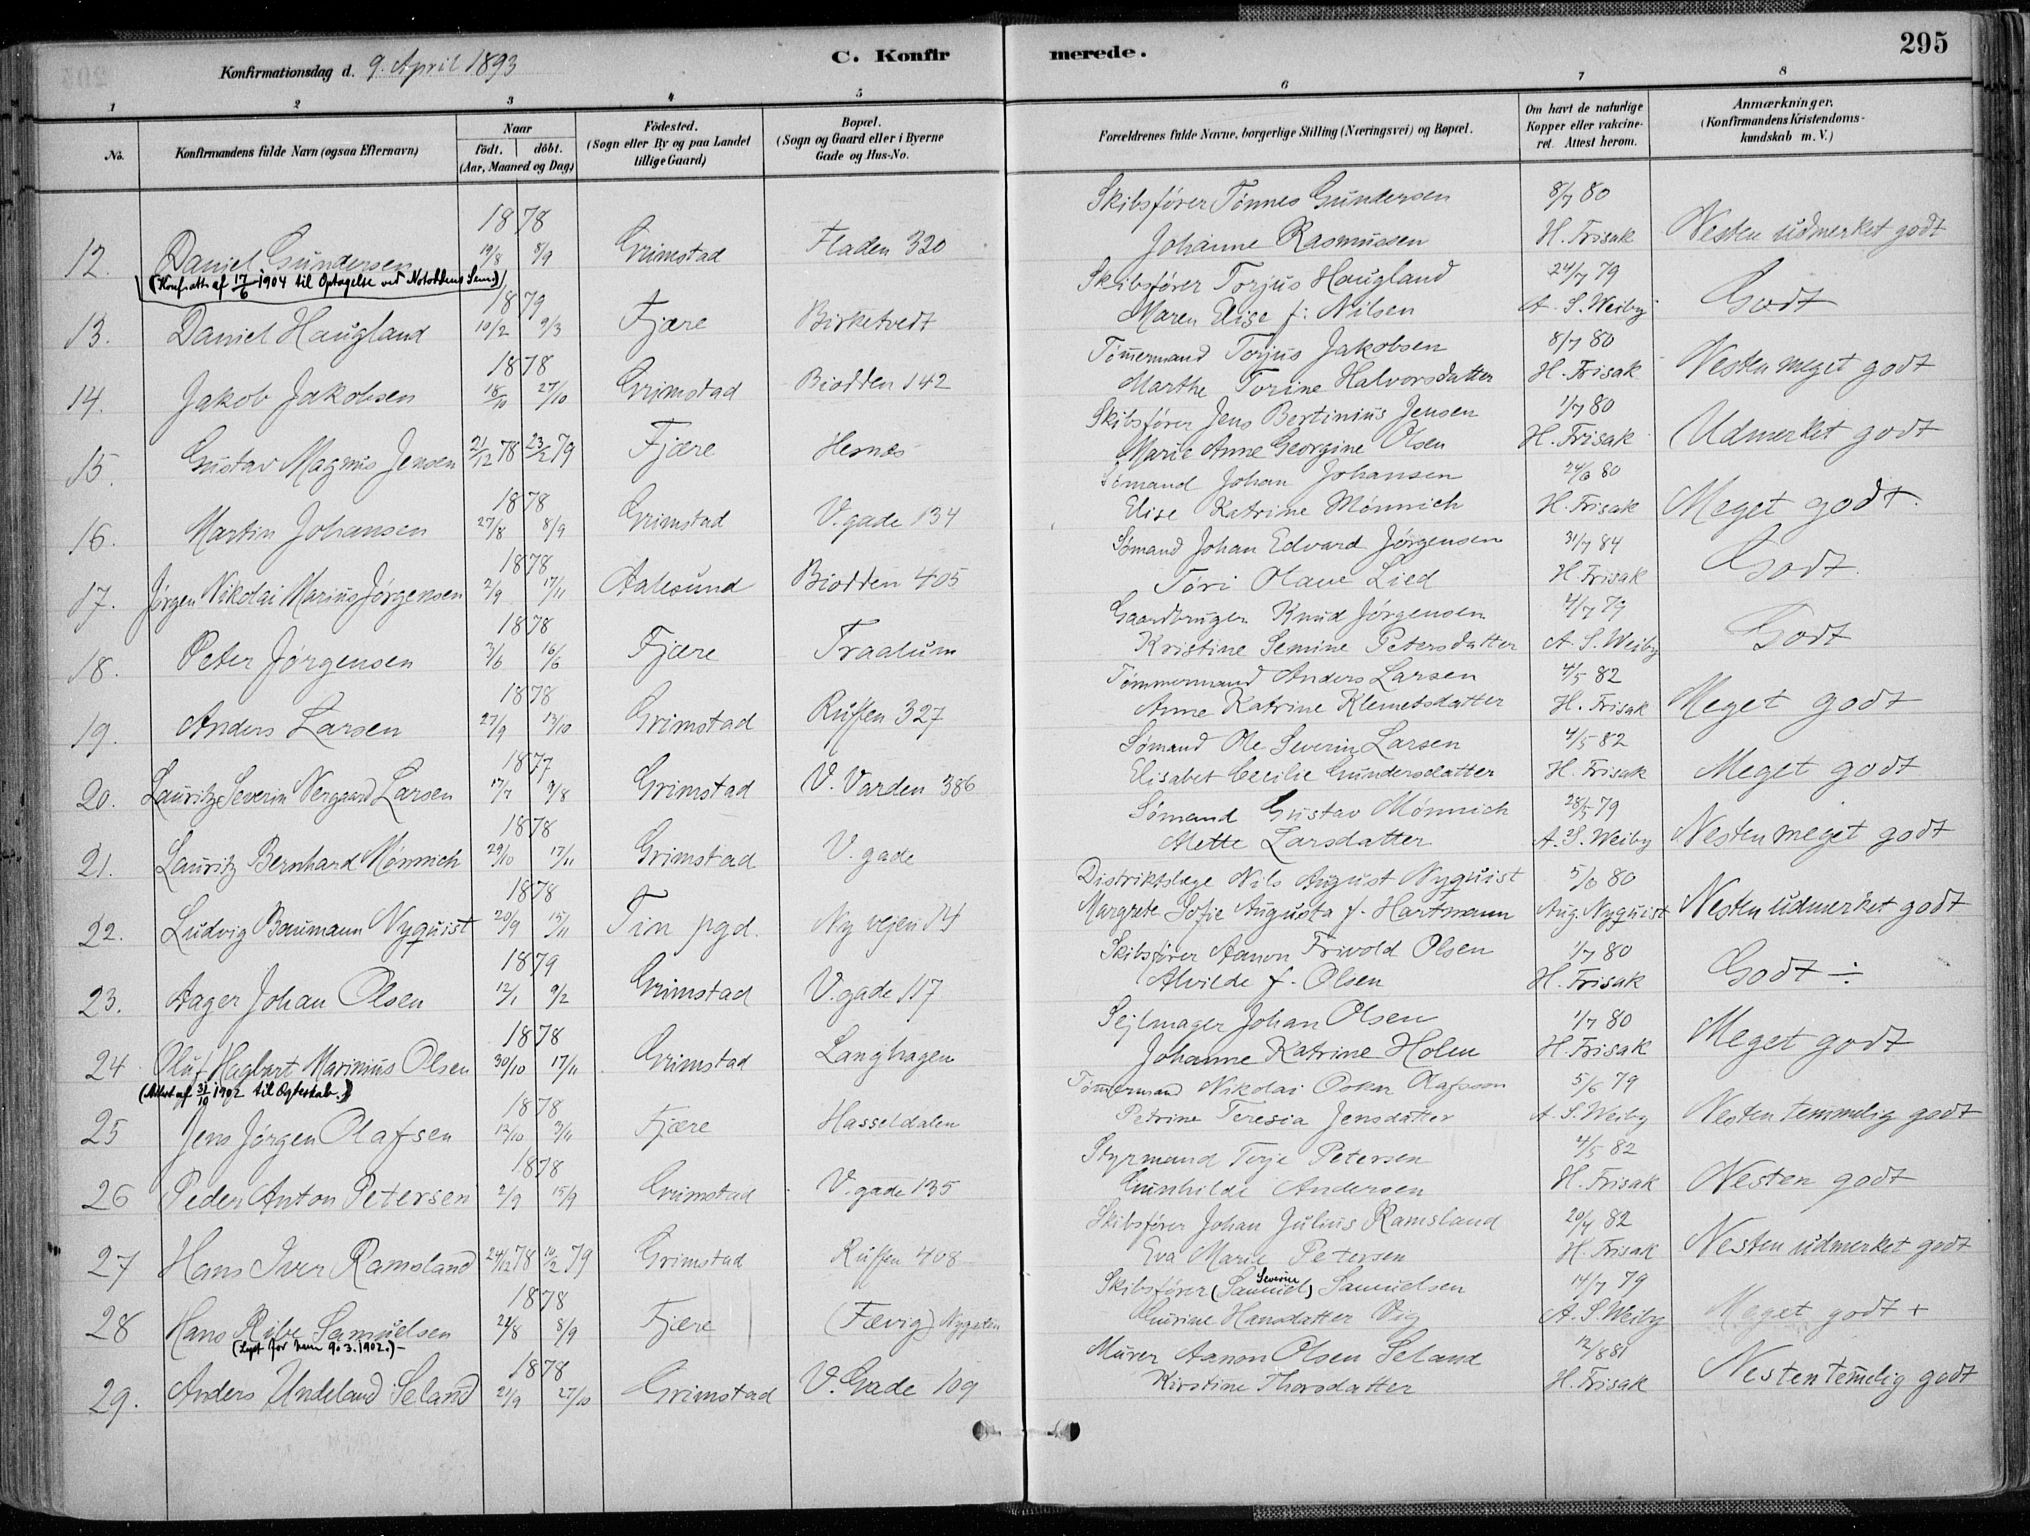 295
Konfirmationsdag d. 9. April 1893
C. Konfirmerede.
1 2 3 4 5 6 7 8
No.
Konfirmandens fulde Navn (ogsaa Efternavn)
Naar
født. døbt.
(Aar, Maaned og Dag)
Fødested.
(Sogn eller By og paa Landet
tillige Gaard)
Bopæl.
(Sogn og Gaard eller i Byerne
Gade og Hus-No.
Forældrenes fulde Navne, borgerlige Stilling (Næringsvei) og Bopæl.
Om havt de naturlige
Kopper eller vakcineret. Attest herom.
Anmærkninger.
(Konfirmandens Kristendomskundskab m. V.)
1878 Skibsfører Tønnes Gundersen 8/7 80
12. Daniel Gundersen 19/8 8/9 Grimstad Fladen 320 Johanne Rasmussen H. Frisak Nesten udmerket godt
(Konf.att. af 17/6 1904 til Optagelse ved Notoddens Sem)
1879 Skibsfører Torjus Haugland 24/7 79
13. Daniel Haugland 10/2 9/3 Fjære Birketvedt Maren Elise f: Nilsen A. S. Weiby Godt
1878 Tømmermand Torjus Jakobsen 8/7 80
14. Jakob Jakobsen 18/10 27/10 Grimstad Biodden 142 Marthe Torine Halvorsdatter H. Frisak Nesten meget godt
Skibsfører Jens Bertinius Jensen 1/7 80
15. Gustav Magnus Jensen 21/12 78 23/2 79 Fjære Hesnæs Marie Anne Georgine Olsen H. Frisak Udmerket godt
1878 Sømand Johan Johansen 24/6 80
16. Martin Johansen 27/8 8/9 Grimstad V. gade 134 Elise Katrine Mønnich H. Frisak Meget godt.
1878 Sømand Johan Edvard Jørgensen 31/7 84
17. Jørgen Nikolai Marius Jørgensen 2/9 17/11 Aalesund Biodden 405 Tøri Olave Lied H. Frisak Godt.
1878 Gaardbruger Knud Jørgensen 4/7 79
18. Peter Jørgensen 3/6 16/6 Fjære Traalum Kristine Semine Petersdatter A. S. Weiby Godt
1878 Tømmermand Anders Larsen 4/5 82
19. Anders Larsen 27/9 13/10 Grimstad Ruffen 327 Anne Katrine Klemetsdatter H. Frisak Meget godt
1877 Sømand Ole Severin Larsen 4/5 82
20. Lauritz Severin Vergaard Larsen 17/7 9/8 Grimstad V. Varden 386 Elisabet Cecilie Gundersdatter H. Frisak Meget godt
1878 Sømand Gustav Mønnich 28/5 79
21. Lauritz Bernhard Mønnich 29/10 17/11 Grimstad V. gade Mette Larsdatter A. S. Weiby Nesten meget godt
1878 Distriktslæge Nils August Nyquist 5/6 80
22. Ludvig Baumann Nyquist 20/9 15/11 Tin pgd. Ny vejen 14 Margrete Sofie Augusta f. Hartmann Aug. Nyquist Nesten udmerket godt
1879 Skibsfører Aanon Frivold Olsen 1/7 80
23. Aager Johan Olsen 12/1 9/2 Grimstad V. gade 117 Alvilde f. Olsen H. Frisak Godt ÷
1878 Sejlmager Johan Olsen 1/7 80
24 Oluf Hagbart Marinius Olsen 30/10 17/11 Grimstad Langhagen Johanne Katrine Holen H. Frisak Meget godt
(Attest af 31/10 1902 til Ægteskab.)
1878 Tømmermand Nikolai Oskar Olafsson 5/6 79
25 Jens Jørgen Olafsen 13/10 3/11 Fjære Hasseldalen Petrine Teresia Jensdatter A. S. Weiby Nesten temmelig godt
1878 Styrmand Terje Petersen 4/5 82
26 Peder Anton Petersen 2/9 15/9 Grimstad V. gade 135 Gunhilde Andersen H. Frisak Nesten godt
Skibsfører Johan Julius Ramsland 20/4 82
27 Hans Iver Ramsland 24/12 78 10/2 79 Grimstad Ruffen 408 Eva Marie Petersen H. Frisak Nesten udmerket godt
1878 Skibsfører (Samuel) Severin Samuelsen 14/7 79
28 Hans Ribe Samuelsen 21/8 8/9 Fjære (Fævig) Nygaden Gurine Hansdatter Vig A. S. Weiby Meget godt +
(Lyst for ham 9.3.1902.)
1878 Murer Aanon Olsen Seland 12/8 81
29. Anders Undeland Seland 21/9 27/10 Grimstad V. Gade 109 Kirstine Thorsdatter H. Frisak Nesten temelig godt